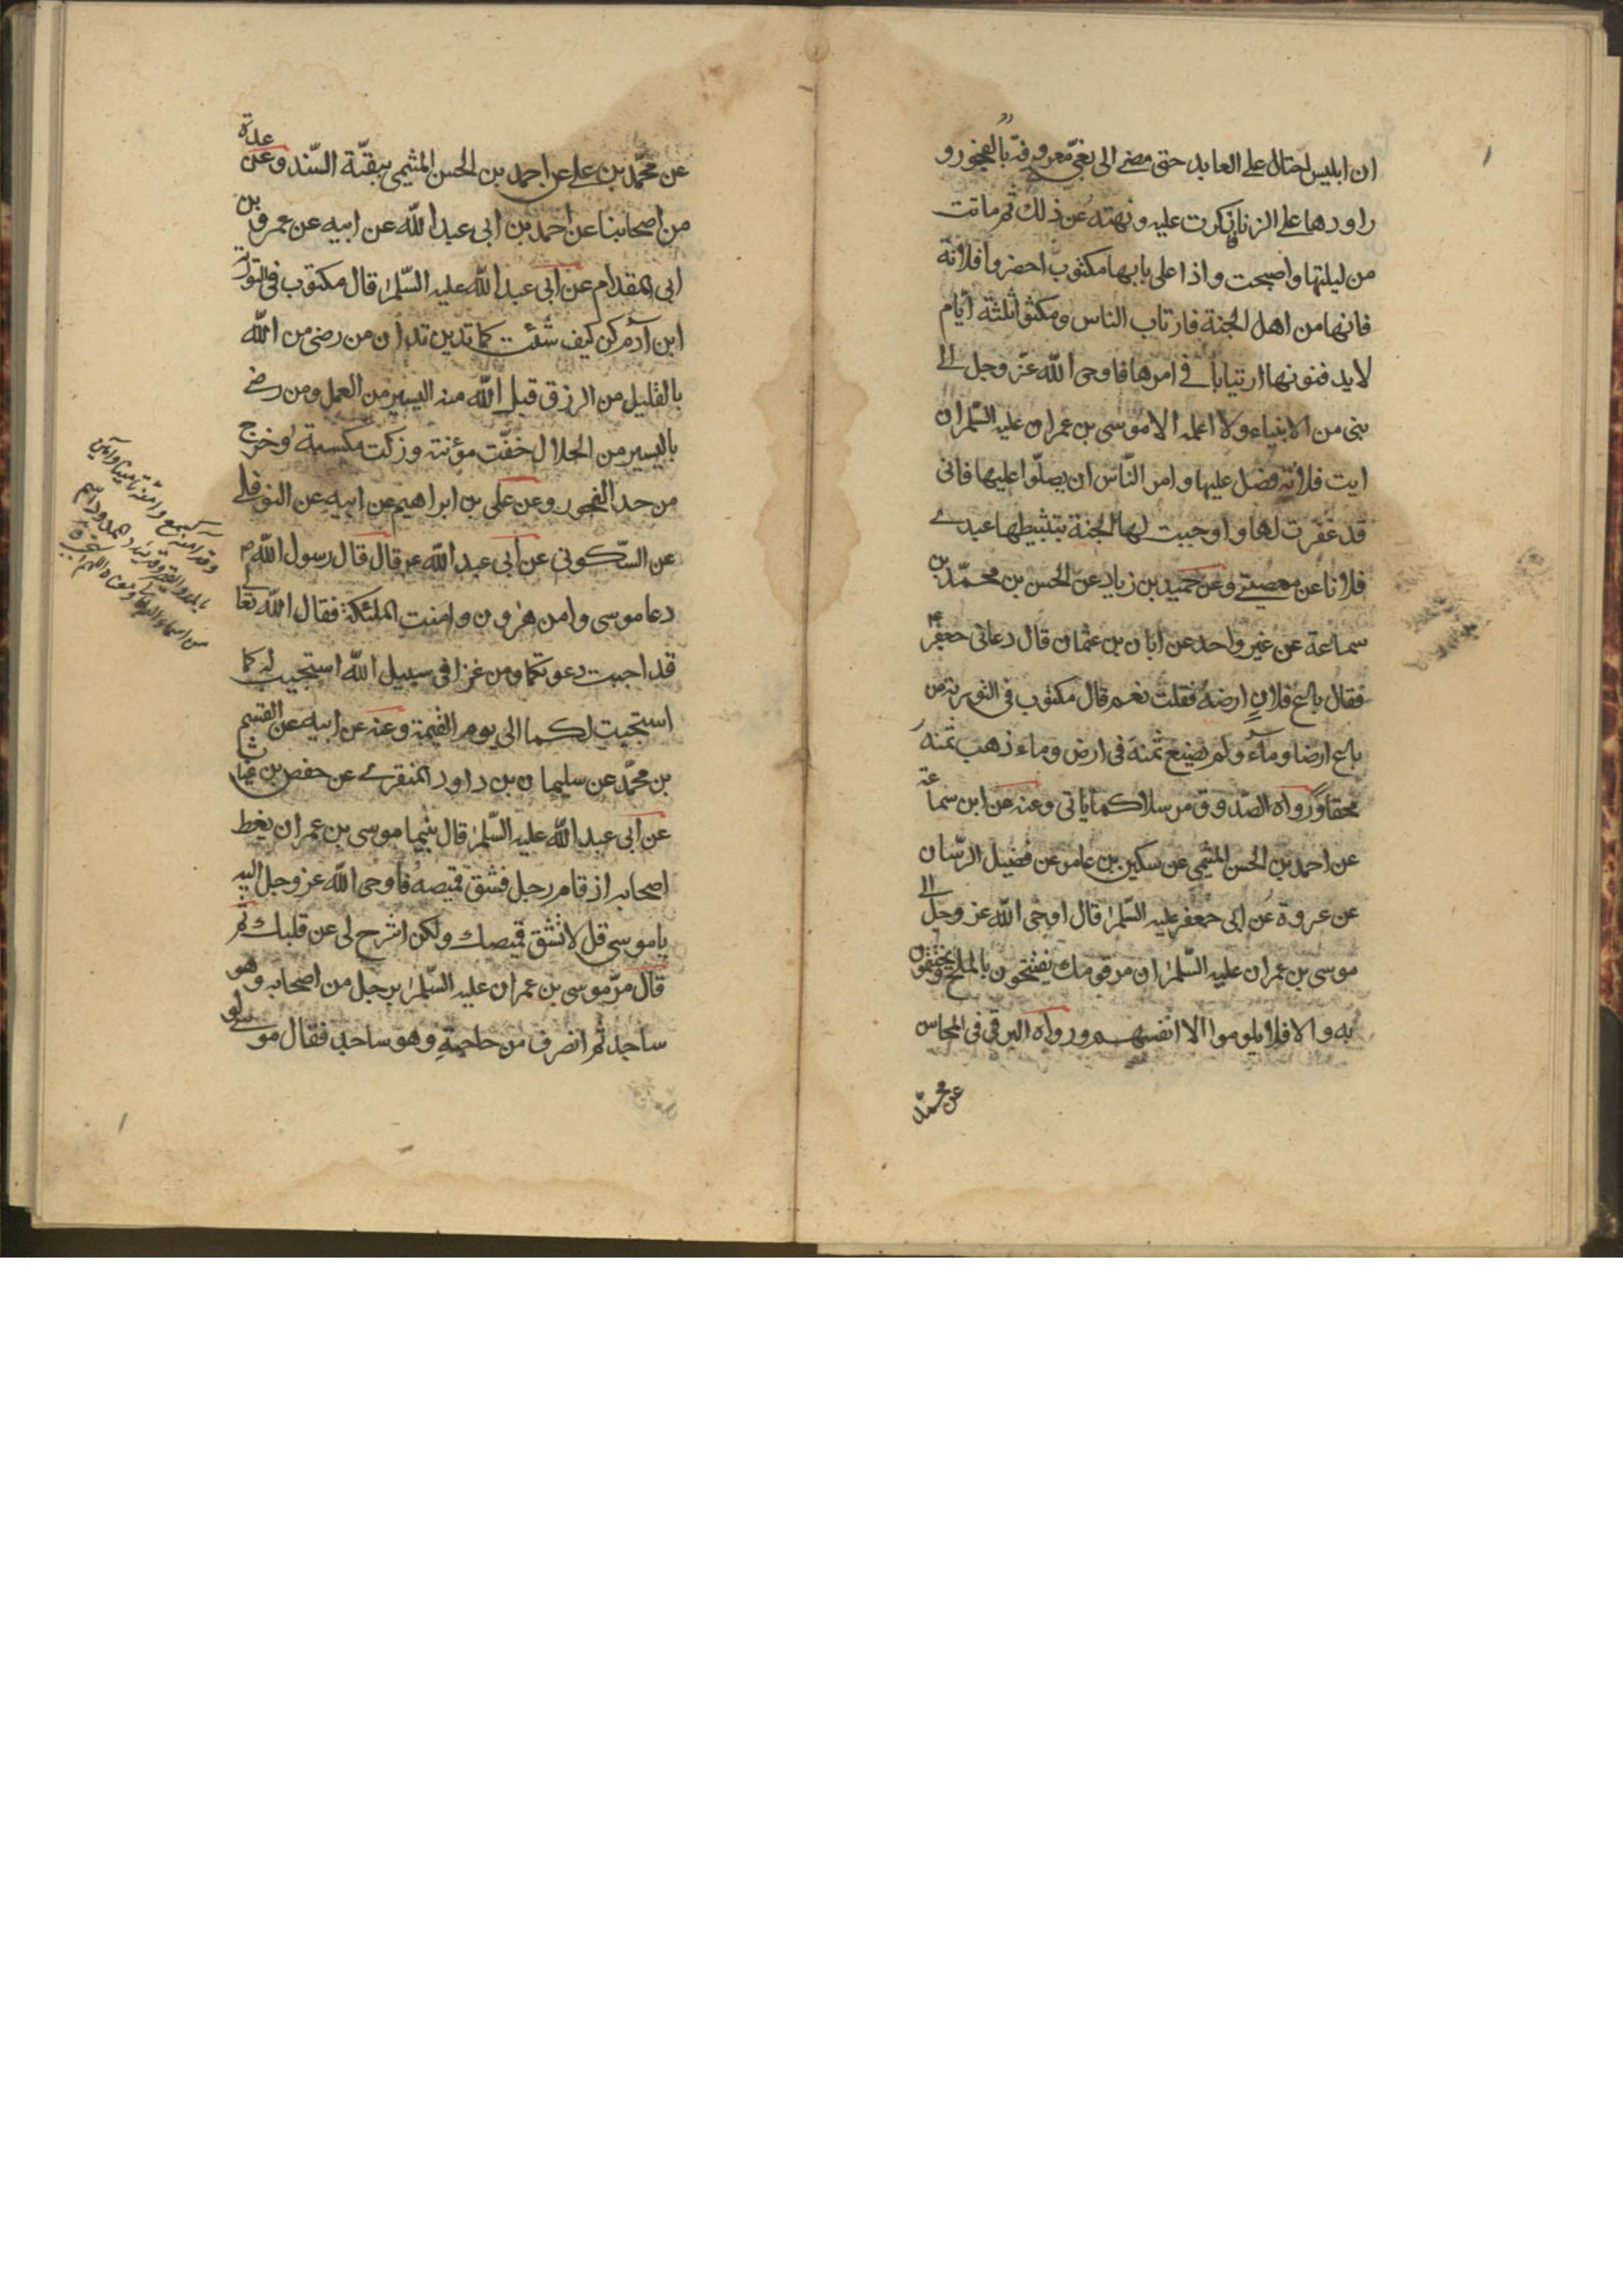 ان ابليس احتال على العابد حتى مضى الى بغى معروفة بالفجور و
راودها على الزنا فانكرت عليه ونهته عن ذلك ثم ماتت
من ليلتها واصبحت واذا على بابها مكتوب احضروا فلانة
فانها من اهل الجنة فارتاب الناس ومكثوا ثلثة ايام
لا يدفنونها ارتيابا فى امرها فاوحى الله عز وجل الى
نبى من الانبياء ولا اعلمه الا موسى بن عمران عليه السلم ان
ايت فلانة فصل عليها وامر الناس ان يصلوا عليها فانى
قد غفرت لها واوجبت لها الجنة بتثبيطها عبدى
فلانا عن معصيتى وعن حميد بن زياد عن الحسن بن محمد بن
سماعة عن غير واحد عن ابان بن عثمان قال دعانى جعفر ع
فقال باع فلان ارضه فقلت نعم قال مكتوب فى التورية من
باع ارضا وماء ولم يضع ثمنه فى ارض وماء ذهب ثمنه
محقا ورواه الصدوق مرسلا كما ياتى وعنه عن ابن سماعة
عن احمد بن الحسن الميثمى عن سكين بن عامر عن فضيل الرسان
عن عروة عن ابى جعفر عليه السلم قال اوحى الله عز وجل الى
موسى بن عمران عليه السلم ان مر قومك يفتتحون بالملح ويختتمون
به والا فلا يلوموا الا انفسهم ورواه البرقى فى المحاسن
عن محمد
عن محمد بن على عن احمد بن الحسن الميثمى ببقية السند وعن عدة
من اصحابنا عن احمد بن ابى عبد الله عن ابيه عن عمرو بن
ابى المقدام عن ابى عبد الله عليه السلم قال مكتوب فى التورية
ابن آدم كن كيف شئت كما تدين تدان من رضى من الله
بالقليل من الرزق قبل الله منه اليسير من العمل ومن رضى
باليسير من الحلال خفت مؤنته وزكت مكسبته وخرج
من حد الفجور وعن على بن ابراهيم عن ابيه عن النوفلى
عن السكونى عن ابى عبد الله ع قال قال رسول الله ص
دعا موسى وامن هرون وامنت الملئكة فقال الله تعالى
قد اجبت دعوتكما ومن غزا فى سبيل الله استجيب له كما
استجيب لكما الى يوم القيمة وعنه عن ابيه عن القسم
بن محمد عن سليمان بن داود المنقرى عن حفص بن غياث
عن ابى عبد الله عليه السلم قال بينما موسى بن عمران يعظ
اصحابه اذ قام رجل فشق قميصه فاوحى الله عز وجل اليه
ياموسى قل لا تشق قميصك ولكن اشرح لى عن قلبك ثم
قال مر موسى بن عمران عليه السلم برجل من اصحابه وهو
ساجد ثم انصرف من حاجته وهو ساجد فقال موسى لو